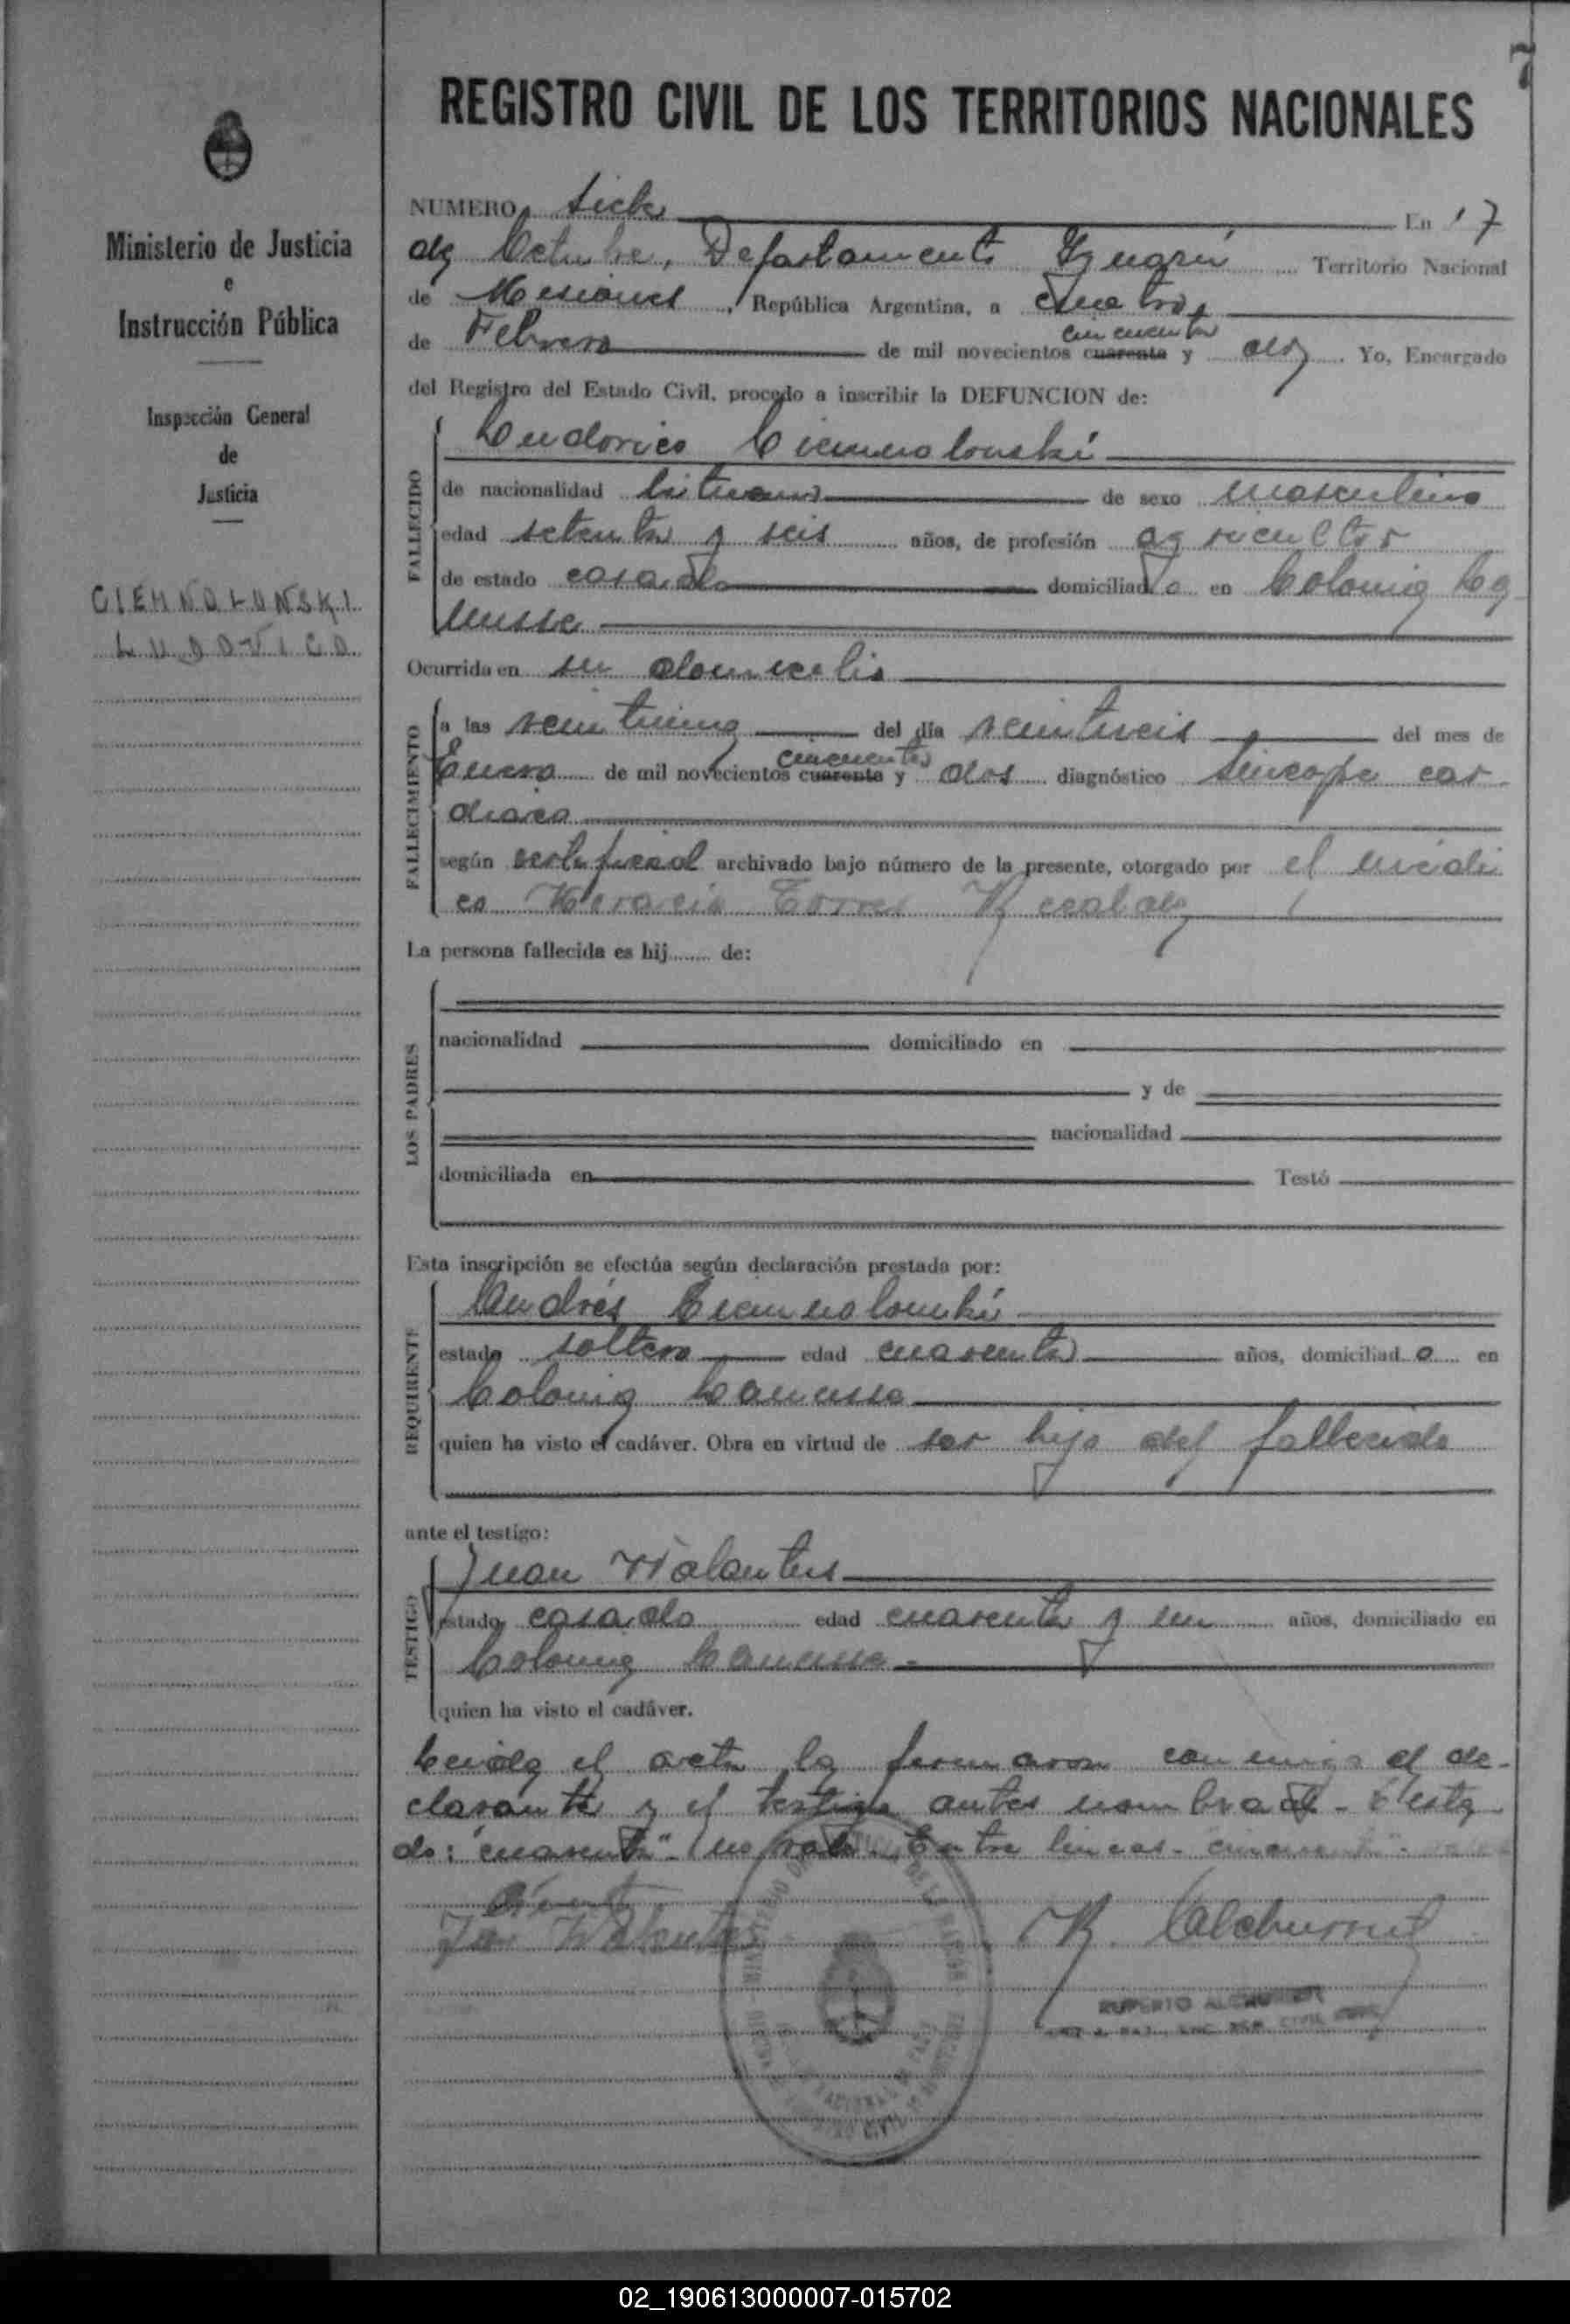 7
REGISTRO CIVIL DE LOS TERRITORIOS NACIONALES
Ministerio de Justicia
e
Instrucción Pública
Inspección General
de
Justicia
CIEMNOLUNSKI
LUDOVICO
NUMERO siete En 17
de Octubre, Departamento Iguazú Territorio Nacional
de Misiones, República Argentina, a cuatro
cincuenta
de Febrero de mil novecientos cuarenta y dos Yo, Encargado
del Registro del Estado Civil, procedo a inscribir la DEFUNCION de:
FALLECIDO
Ludovico Ciemnolonski
de nacionalidad lituano de sexo masculino
edad setenta y seis años, de profesión agricultor
de estado casado domiciliado en Colonia La
nusse
Ocurrida en su domicilio
FALLECIMIENTO
a las veintiuna del día veintiseis del mes de
cincuenta
Enero de mil novecientos cuarenta y dos diagnóstico sincope car
diaco
según certificad archivado bajo número de la presente, otorgado por el médi
co Horacio Torres
La persona fallecida es hij de:
LOS PADRES
nacionalidad domiciliado en
y de
nacionalidad
domiciliada en Testó
Esta inscripción se efectúa según declaración prestada por:
REQUIRENTE
Andrés Ciemnolonski
estado soltero edad cuarenta años, domiciliado en
Colonia Lanusse
quien ha visto el cadáver. Obra en virtud de ser hijo del fallecido
ante el testigo:
TESTIGO
Juan Walantus
estado casado edad cuarenta y un años, domiciliado en
Colonia Lanusse.-
quien ha visto el cadáver.
Leida el acta, la firmaron conmigo el de-
clarante y el testigo antes nombrado -
do: "cuarenta" - no vale. Entre lineas - cincuenta -
Jan Walantus
R. Alchurrut
RUPERTO
02_190613000007-015702